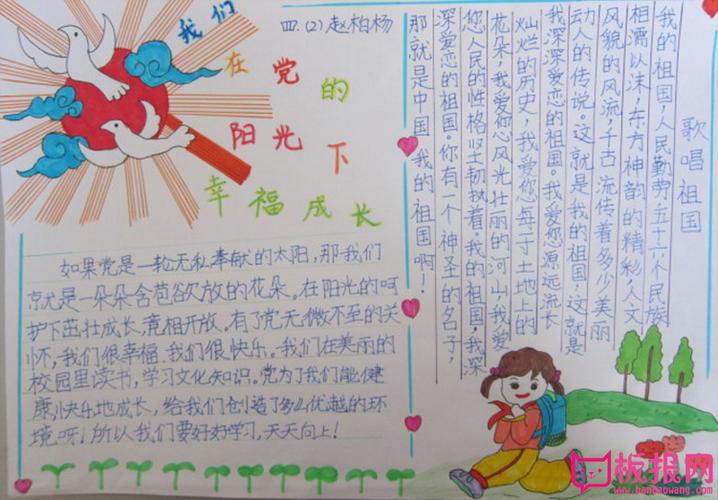 我们
在党的
阳光下
幸福成长
四.(2)赵柏杨
如果党是一轮无私奉献的太阳,那我们
就是一朵朵含苞欲放的花朵。在阳光的呵
护下茁壮成长,竞相开放。有了党无微不至的关
怀,我们很幸福,我们很快乐。我们在美丽的
校园里读书,学习文化知识。党为了我们能健
康快乐地成长,给我们创造了多么优越的环
境呀!所以我们要好好学习,天天向上!
歌唱祖国
我的祖国,人民勤劳,五十六个民族
相濡以沫,东方神韵的精彩,人文
风貌的风流,千古流传着多少美丽
动人的传说。这就是我的祖国,这就是
我深深爱恋的祖国。我爱您源远流长
灿烂的历史,我爱您每寸土地上的
花朵,我爱您风光壮丽的河山,我爱
您人民的性格坚韧执着。我的祖国,我深
深爱恋的祖国。你有一个神圣的名字,
那就是中国!我的祖国啊!
板报网
www.banbaowang.com